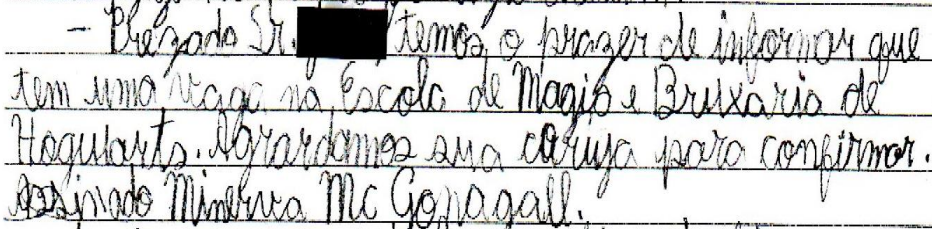 - Prezado Sr. temos o prazer de informar que
tem uma vaga na Escola de Magia e Bruxaria de
Hogwarts. Agrardamos sua coruja para confirmar.
Assinado Minerva Mc Gonagall.